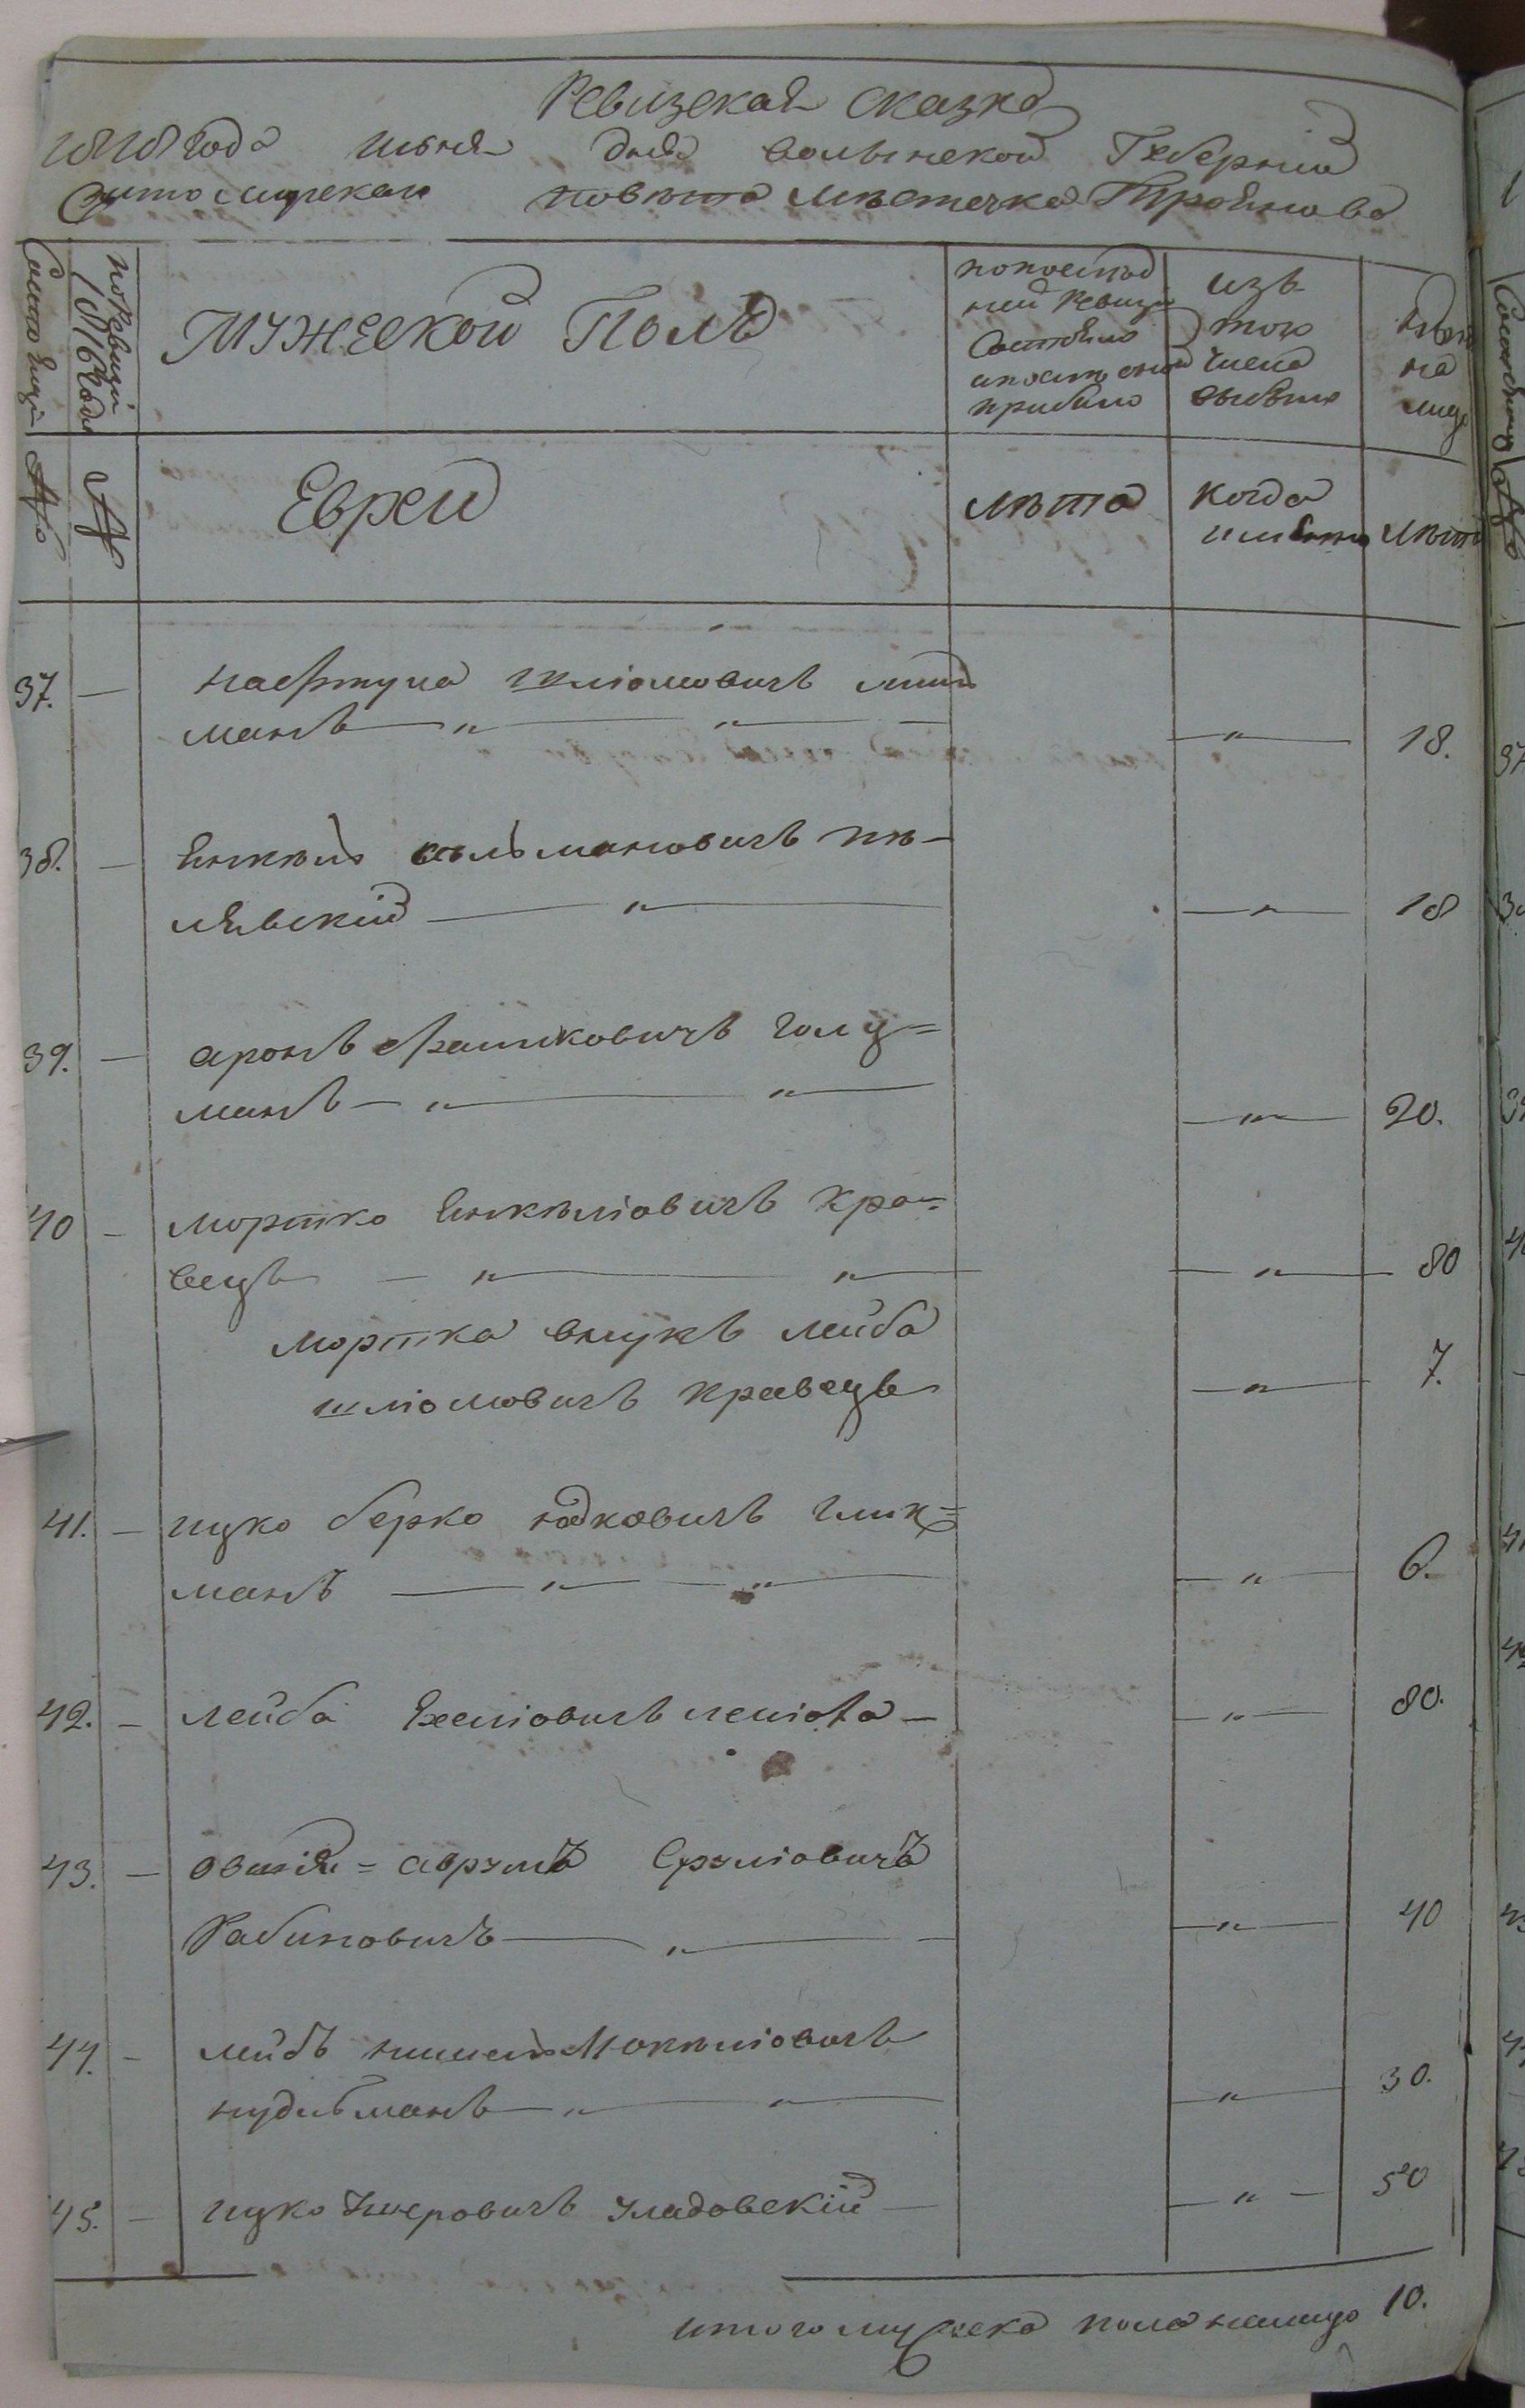 Ревизская сказка
1818 года июня дня волынской Губернии
Житомирскаго повета местечка Троянова
Самто
По Ревизии 1816 года
Мужеской Полъ
по последней Ревизии состояло и после оной прибыло
изъ того числа выбыло
ныне на лицо
№
№
Евреи
лета
когда имянно
лета
37. — Нафтула шліомовичъ
манъ — " — " — — " — 18.
38. — Янкель кельмановичъ пи-
лявский — " — — " — 18
39. — аронъ Фроимковичъ голц=
манъ — " — " — — " — 20.
40 — мортко Янкеліовичъ кра=
вецъ — " — " — — " — 80
мортка внукъ лейба
шліомовичъ кравецъ — " — 7.
41. — ицко берко юдковичъ глик=
манъ — " — " — — " — 6.
42. — лейба Ехеліовичъ — — " — 80.
43. — овшия = аврумъ Сруліовичъ
Рабиновичъ — " — — " — 40
44. — лейбъ
нудельманъ — " — " — — " — 30.
45. — ицко Уладовский — — " — 50
итого мужеска пола налицо 10.